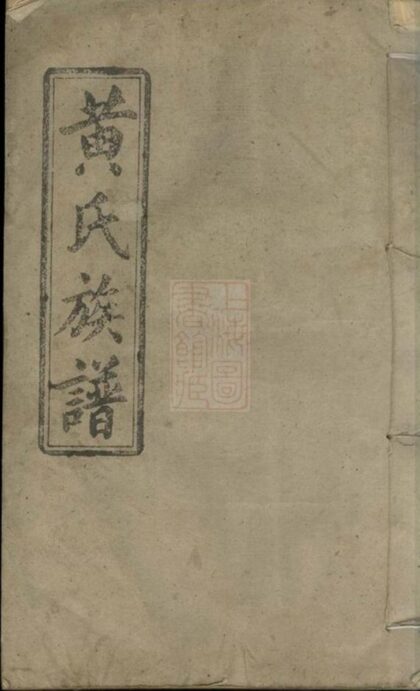 黄氏族譜
上海圖
書館藏